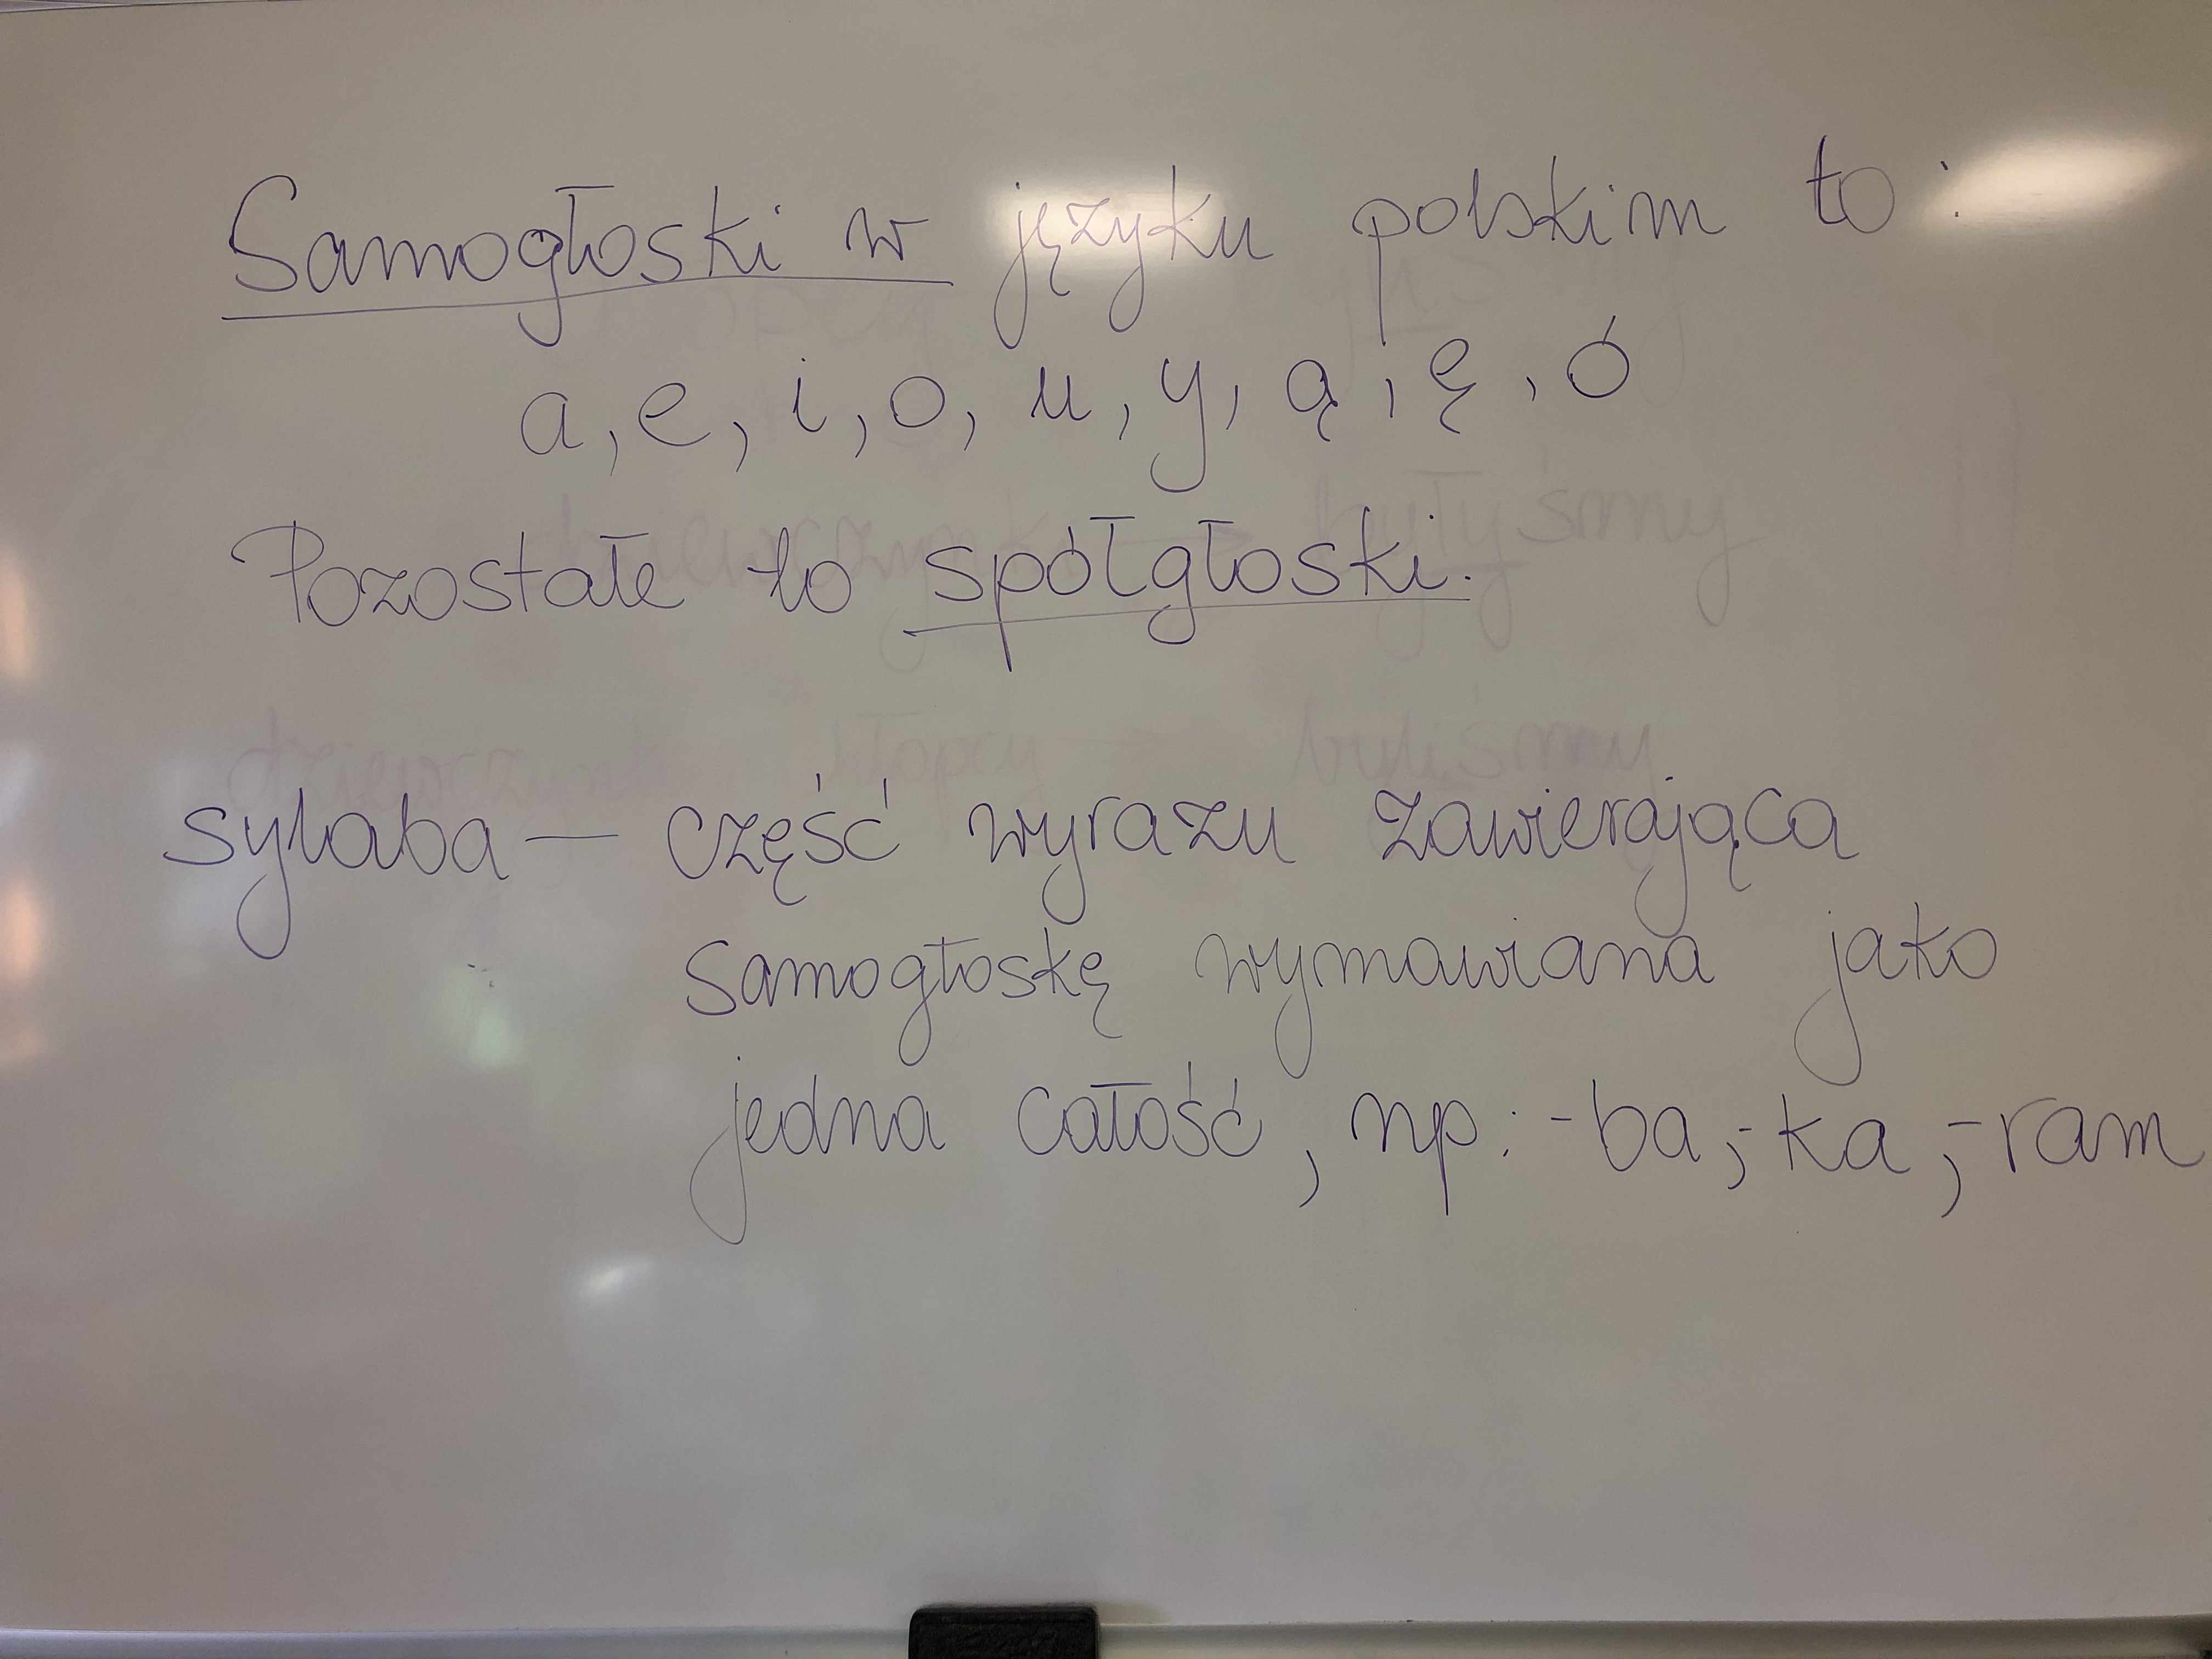 Samogłoski w języku polskim to:
a, e, i, o, u, y, ą, ę, ó
Pozostałe to spółgłoski.
byłyśmy
chłopcy byliśmy
sylaba – część wyrazu zawierająca
samogłoskę wymawiana jako
jedna całość, np: -ba,-ka,-ram